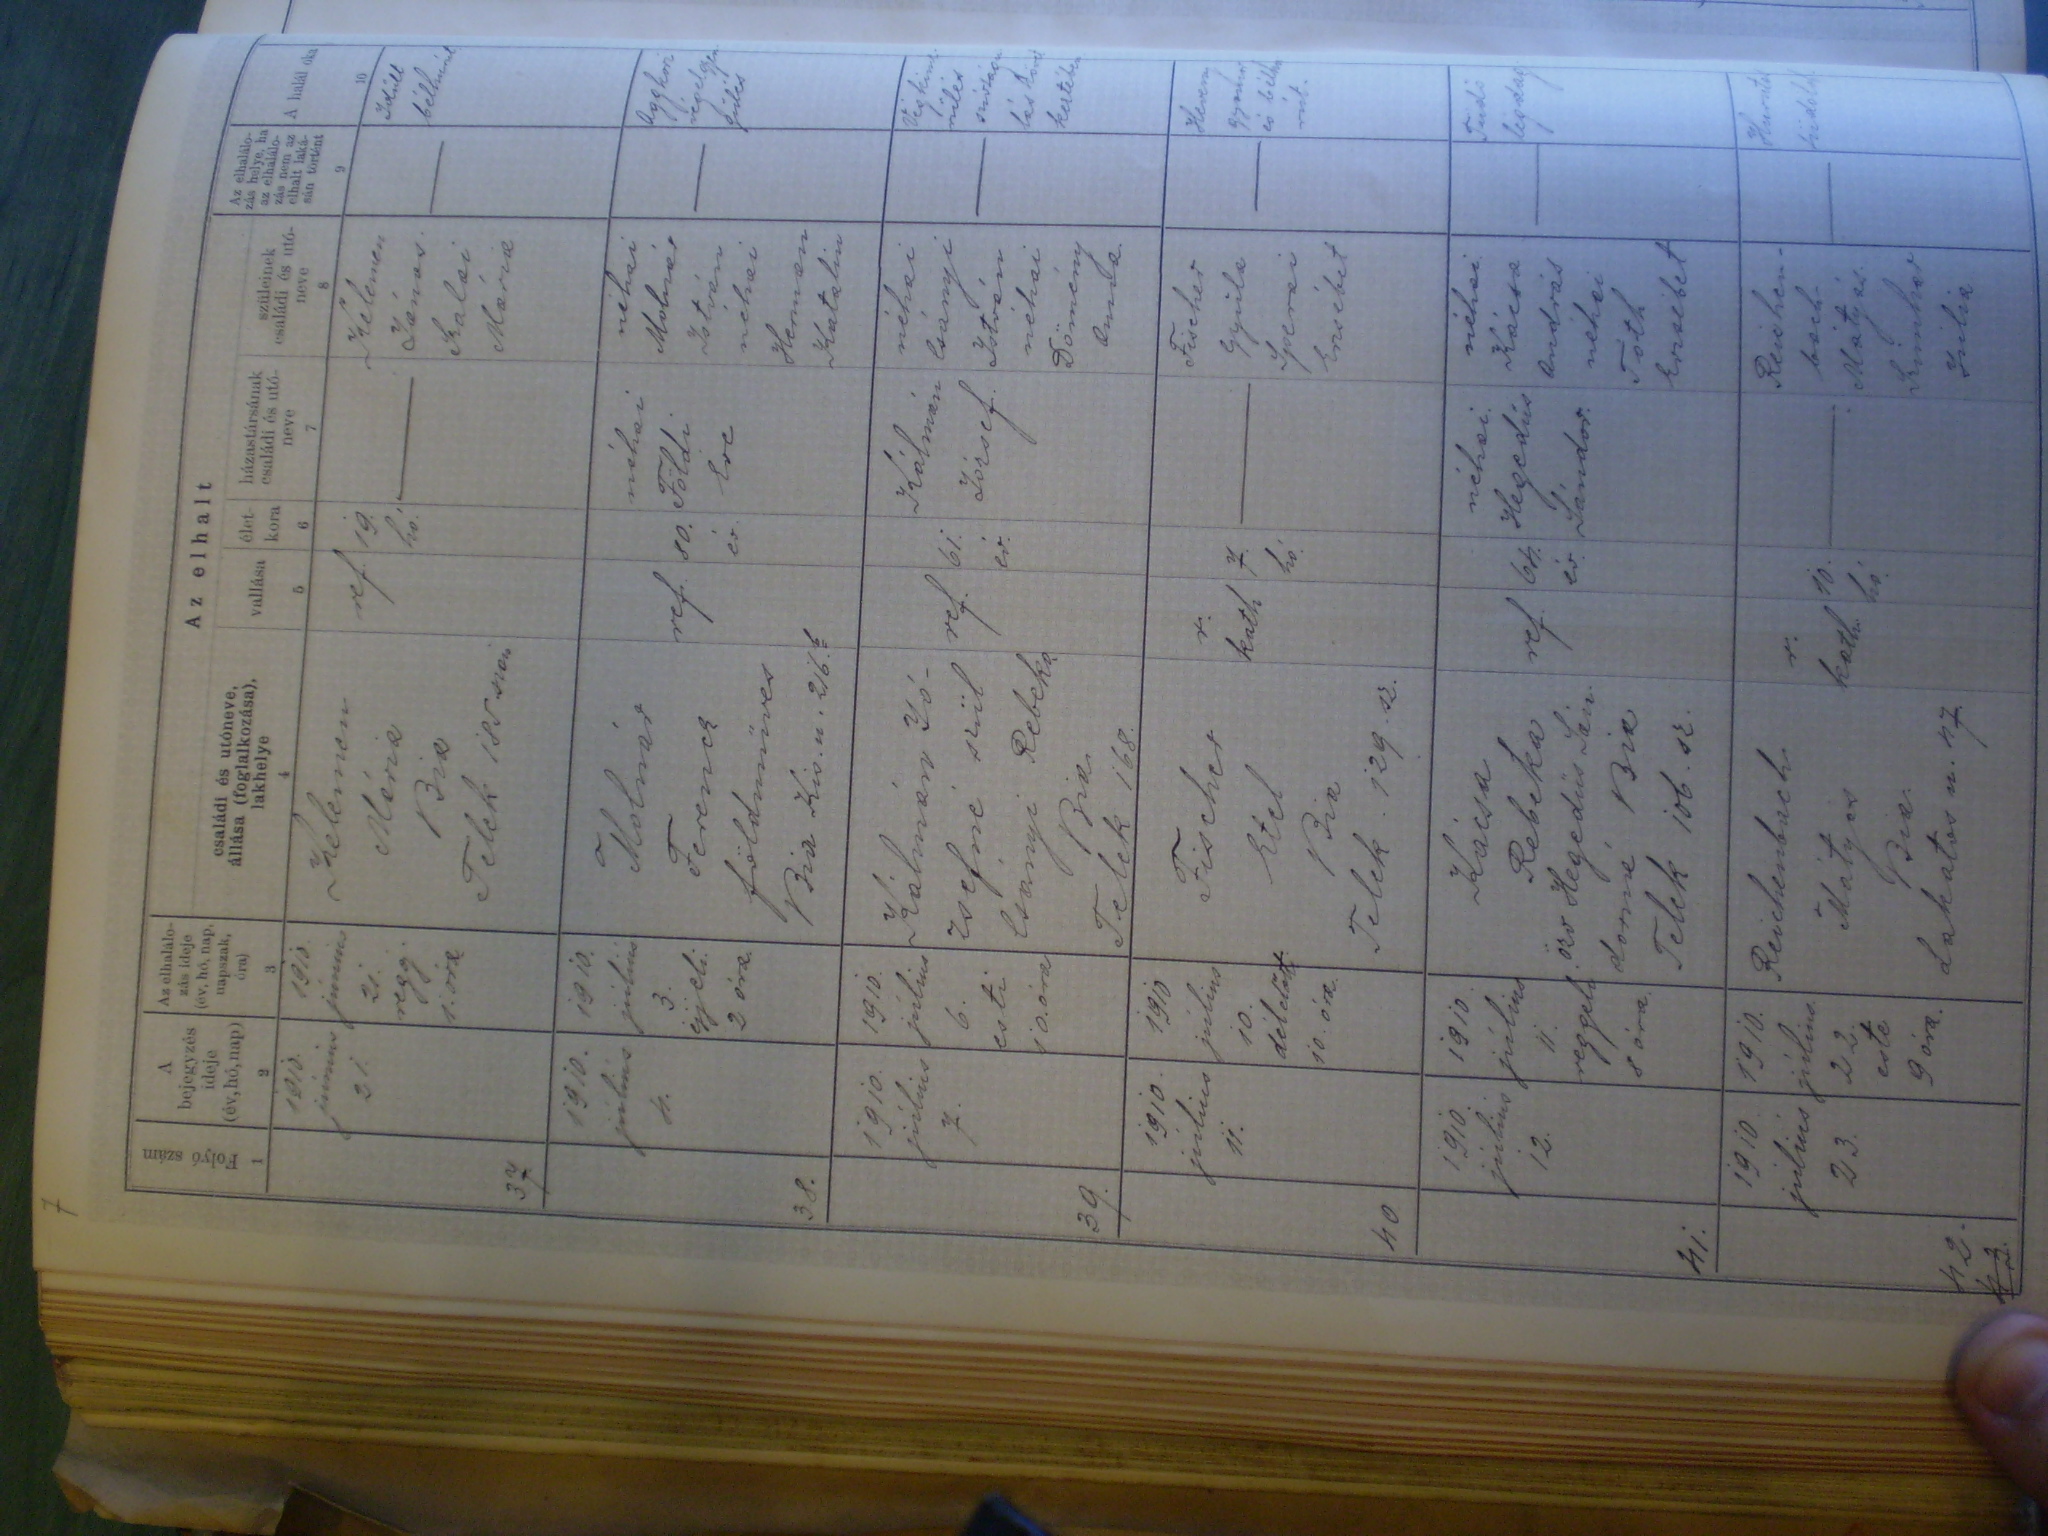 7
Az elhalt
Folyó szám
A
bejegyzés
ideje
(év, hó, nap)
Az elhalálo-
zás ideje
(év, hó, nap,
napszak,
óra)
családi és utóneve,
állása (foglalkozása),
lakhelye
vallása
élet-
kora
házastársának
családi és utó-
neve
szüleinek
családi és utó-
neve
Az elhalálo-
zás helye, ha
az elhalálo-
zás nem az
elhalt laká-
sán történt
A halál oka
1
2
3
4
5
6
7
8
9
10
37
1910.
június
21.
1910.
június
21.
regg.
1. óra
Kelemen
Mária
Bia
Telek 185 szám
ref.
19.
hó.
Kelemen
János.
Kalai
Mária
Idült
bélhurut
38.
1910.
július
4.
1910.
július
3.
éjjeli.
2 óra
Molnár
Ferencz
földmüves
Bia Kis. u. 216.
ref.
80.
év.
néhai
Földi
Éva
néhai
Molnár
István
néhai
Herman
Katalin
Aggkori
végelgyen
gülés
39.
1910.
július
7.
1910.
július
6.
esti
10. óra
Kálmán Jó-
zsefné szül
Csányi Rebeka
Bia
Telek 168.
ref.
61.
év.
Kálmán
József.
néhai
Csányi
István
néhai
Dömény
Anna.
40
1910.
július
11.
1910
július
10.
délelőtt
10. óra.
Fischer
Etel
Bia
Telek. 129. sz.
r.
kath
7.
hó.
Fischer
Gyula
Erzsébet
Heveny
gyomor
és bélhu
rut.
41.
1910.
július
12.
1910.
július
11.
reggeli.
8 óra.
Kácsa
Rebeka
özv Hegedüs Sán-
dorné Bia
Telek 106. sz.
ref.
64.
év.
néhai.
Hegedüs
Sándor.
néhai.
Kácsa
András
néhai
Tóth
Erzsébet
Tüdő
légdag
42.
43.
1910.
július
23.
1910.
július
22
este
9 óra.
Reichenbach
Mátyás
Bia.
Lakatos u. 47
r.
kath.
10.
hó.
Reichen-
bach
Mátyás.
Julia